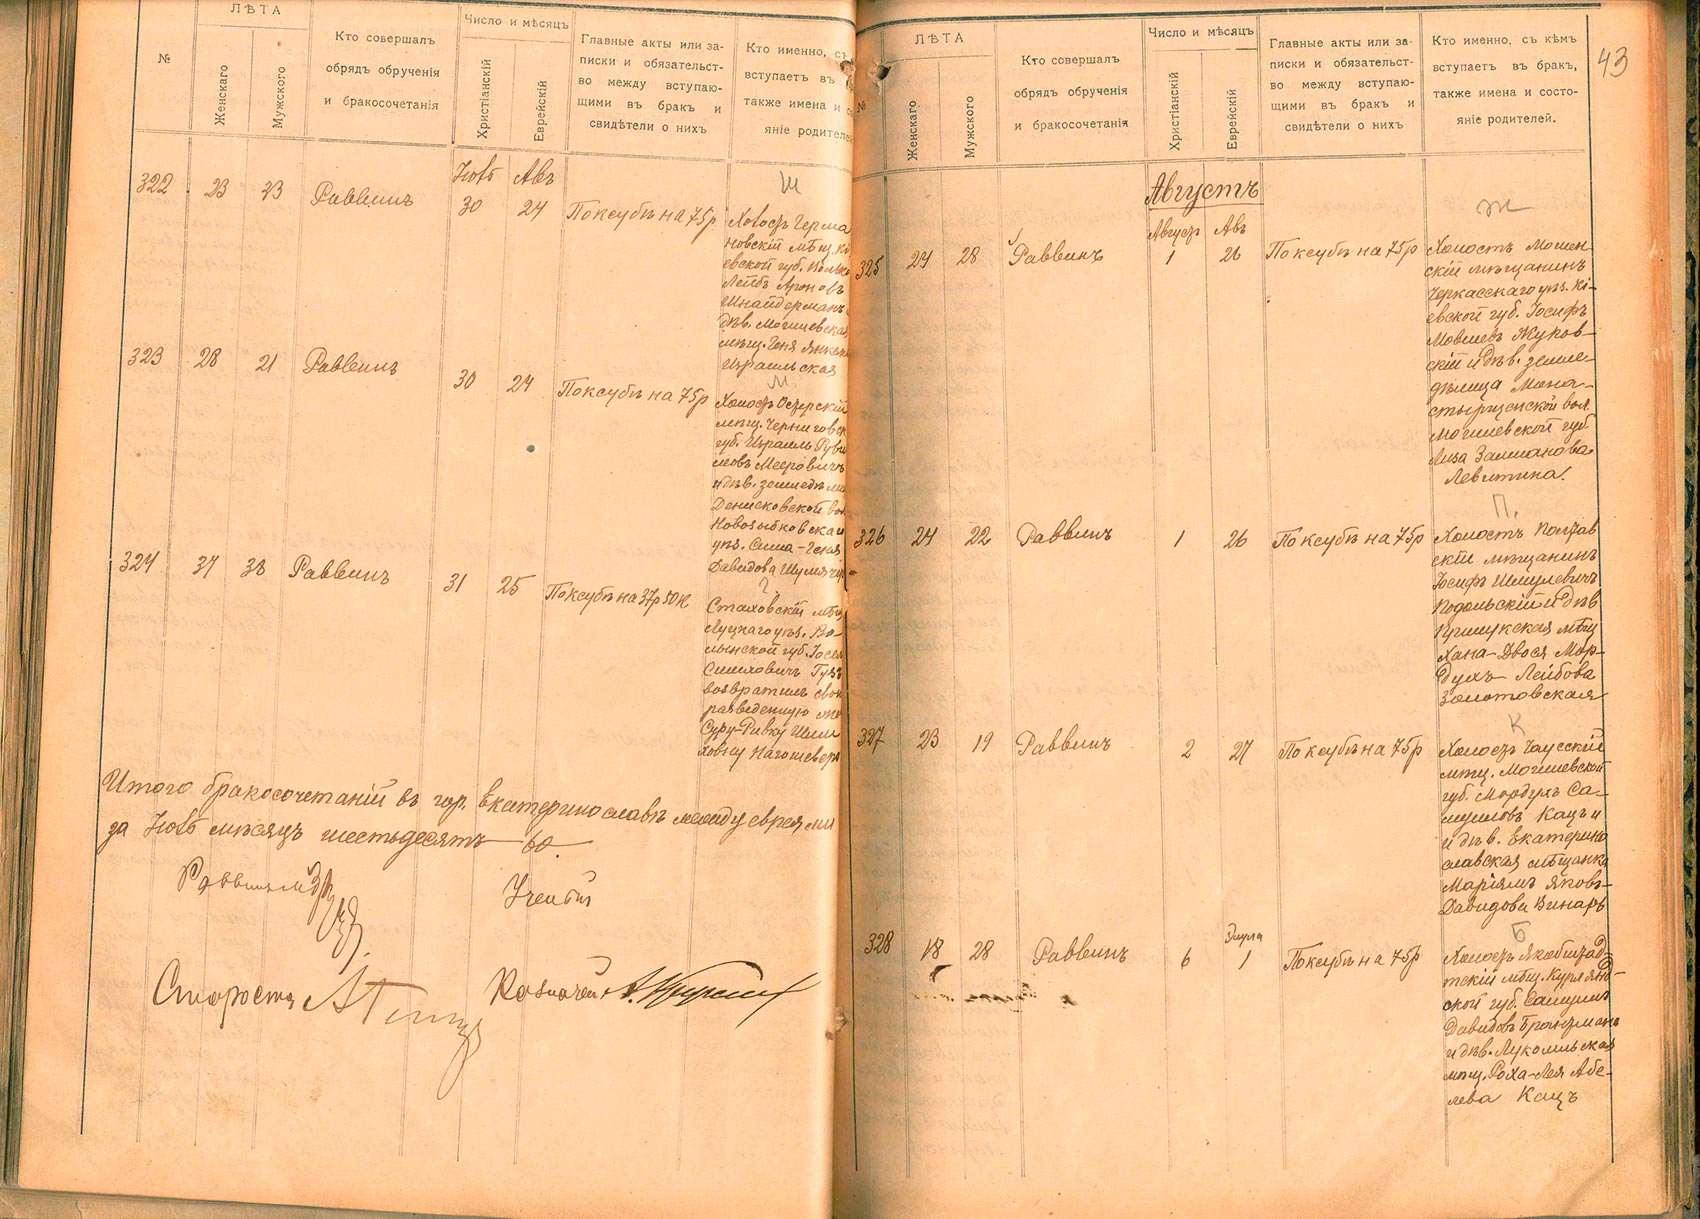 №
ЛѢТА
Женскаго
Мужского
Кто совершалъ
обрядъ обрученія
и бракосочетанія
Число и мѣсяцъ
Христіанскій
Еврейскій
Главные акты или за-
писки и обязательст-
во между вступаю-
щими въ бракъ и
свидѣтели о нихъ
Кто именно, съ
вступаетъ въ
также имена и со
яніе родителей
322 23 23 Раввинъ
Іюль Авъ
30 24 По ксубѣ на 75 р
Ш
Холостъ Герма
новскій мѣщ. Кі
евской губ.
Лейбъ Ароновъ
Шнайдерманъ
дѣв. Могилевская
мѣщ. Геня
Израильская
323 28 21 Раввинъ
30 24 По ксубѣ на 75 р
М
Холостъ Озерскій
мѣщ. Чернигов
губ. Израиль Руви
мовъ Мееровичъ
и дѣв. земледѣл
Денисковской вол
Новозыбковска
уѣз. Сима-
Давидова
324 37 38 Раввинъ
31 25 По ксубѣ на 37 р 50 к
Г
мѣщ
Луцкаго уѣз. Во-
лынской губ.
возвратилъ свою
разведенную же
Суру-Ривку
ховну
Итого бракосочетаній въ гор. Екатеринославѣ между евреями
за Іюль мѣсяцъ шестьдесятъ 60
Раввинъ
Ученый
Староста
Казначей
43
№
ЛѢТА
Женскаго
Мужского
Кто совершалъ
обрядъ обрученія
и бракосочетанія
Число и мѣсяцъ
Христіанскій
Еврейскій
Главные акты или за-
писки и обязательст-
во между вступаю-
щими въ бракъ и
свидѣтели о нихъ
Кто именно, съ кѣмъ
вступаетъ въ бракъ,
также имена и состо-
яніе родителей.
Августъ
Августъ Авъ
325 24 28 Раввинъ 1 26 По ксубѣ на 75 р
Ж
Холостъ Мошен
скій мѣщанинъ
Черкасскаго уѣз. Кі-
евской губ. Іосифъ
Мовшевъ Жуков-
скій и дѣв. земле-
дѣлица Мона-
стырщенской вол.
Могилевской губ.
Лиза Залманова
Левитина.
326 24 22 Раввинъ 1 26 По ксубѣ на 75 р
П.
Холостъ Полтав
скій мѣщанинъ
Іосифъ Шмулевичъ
Подольскій и дѣв
мѣщ
Хана-Двося Мор-
духъ-Лейбова
Золотовская
327 23 19 Раввинъ 2 27 По ксубѣ на 75 р
К
Холостъ Чаусскій
мѣщ. Могилевской
губ. Мордухъ Са-
муиловъ Кацъ и
и дѣв. Екатерино
славская мѣщанка
Маріямъ Яковъ-
Давидова Винаръ
328 18 28 Раввинъ 6 Элула 1 По ксубѣ на 75 р
Б
Холостъ Якобштад-
тскій мѣщ. Курлянд-
ской губ. Самуилъ
Давидовъ
и дѣв. Лукомльская
мѣщ. Роха-Лея Абе-
лева Кацъ